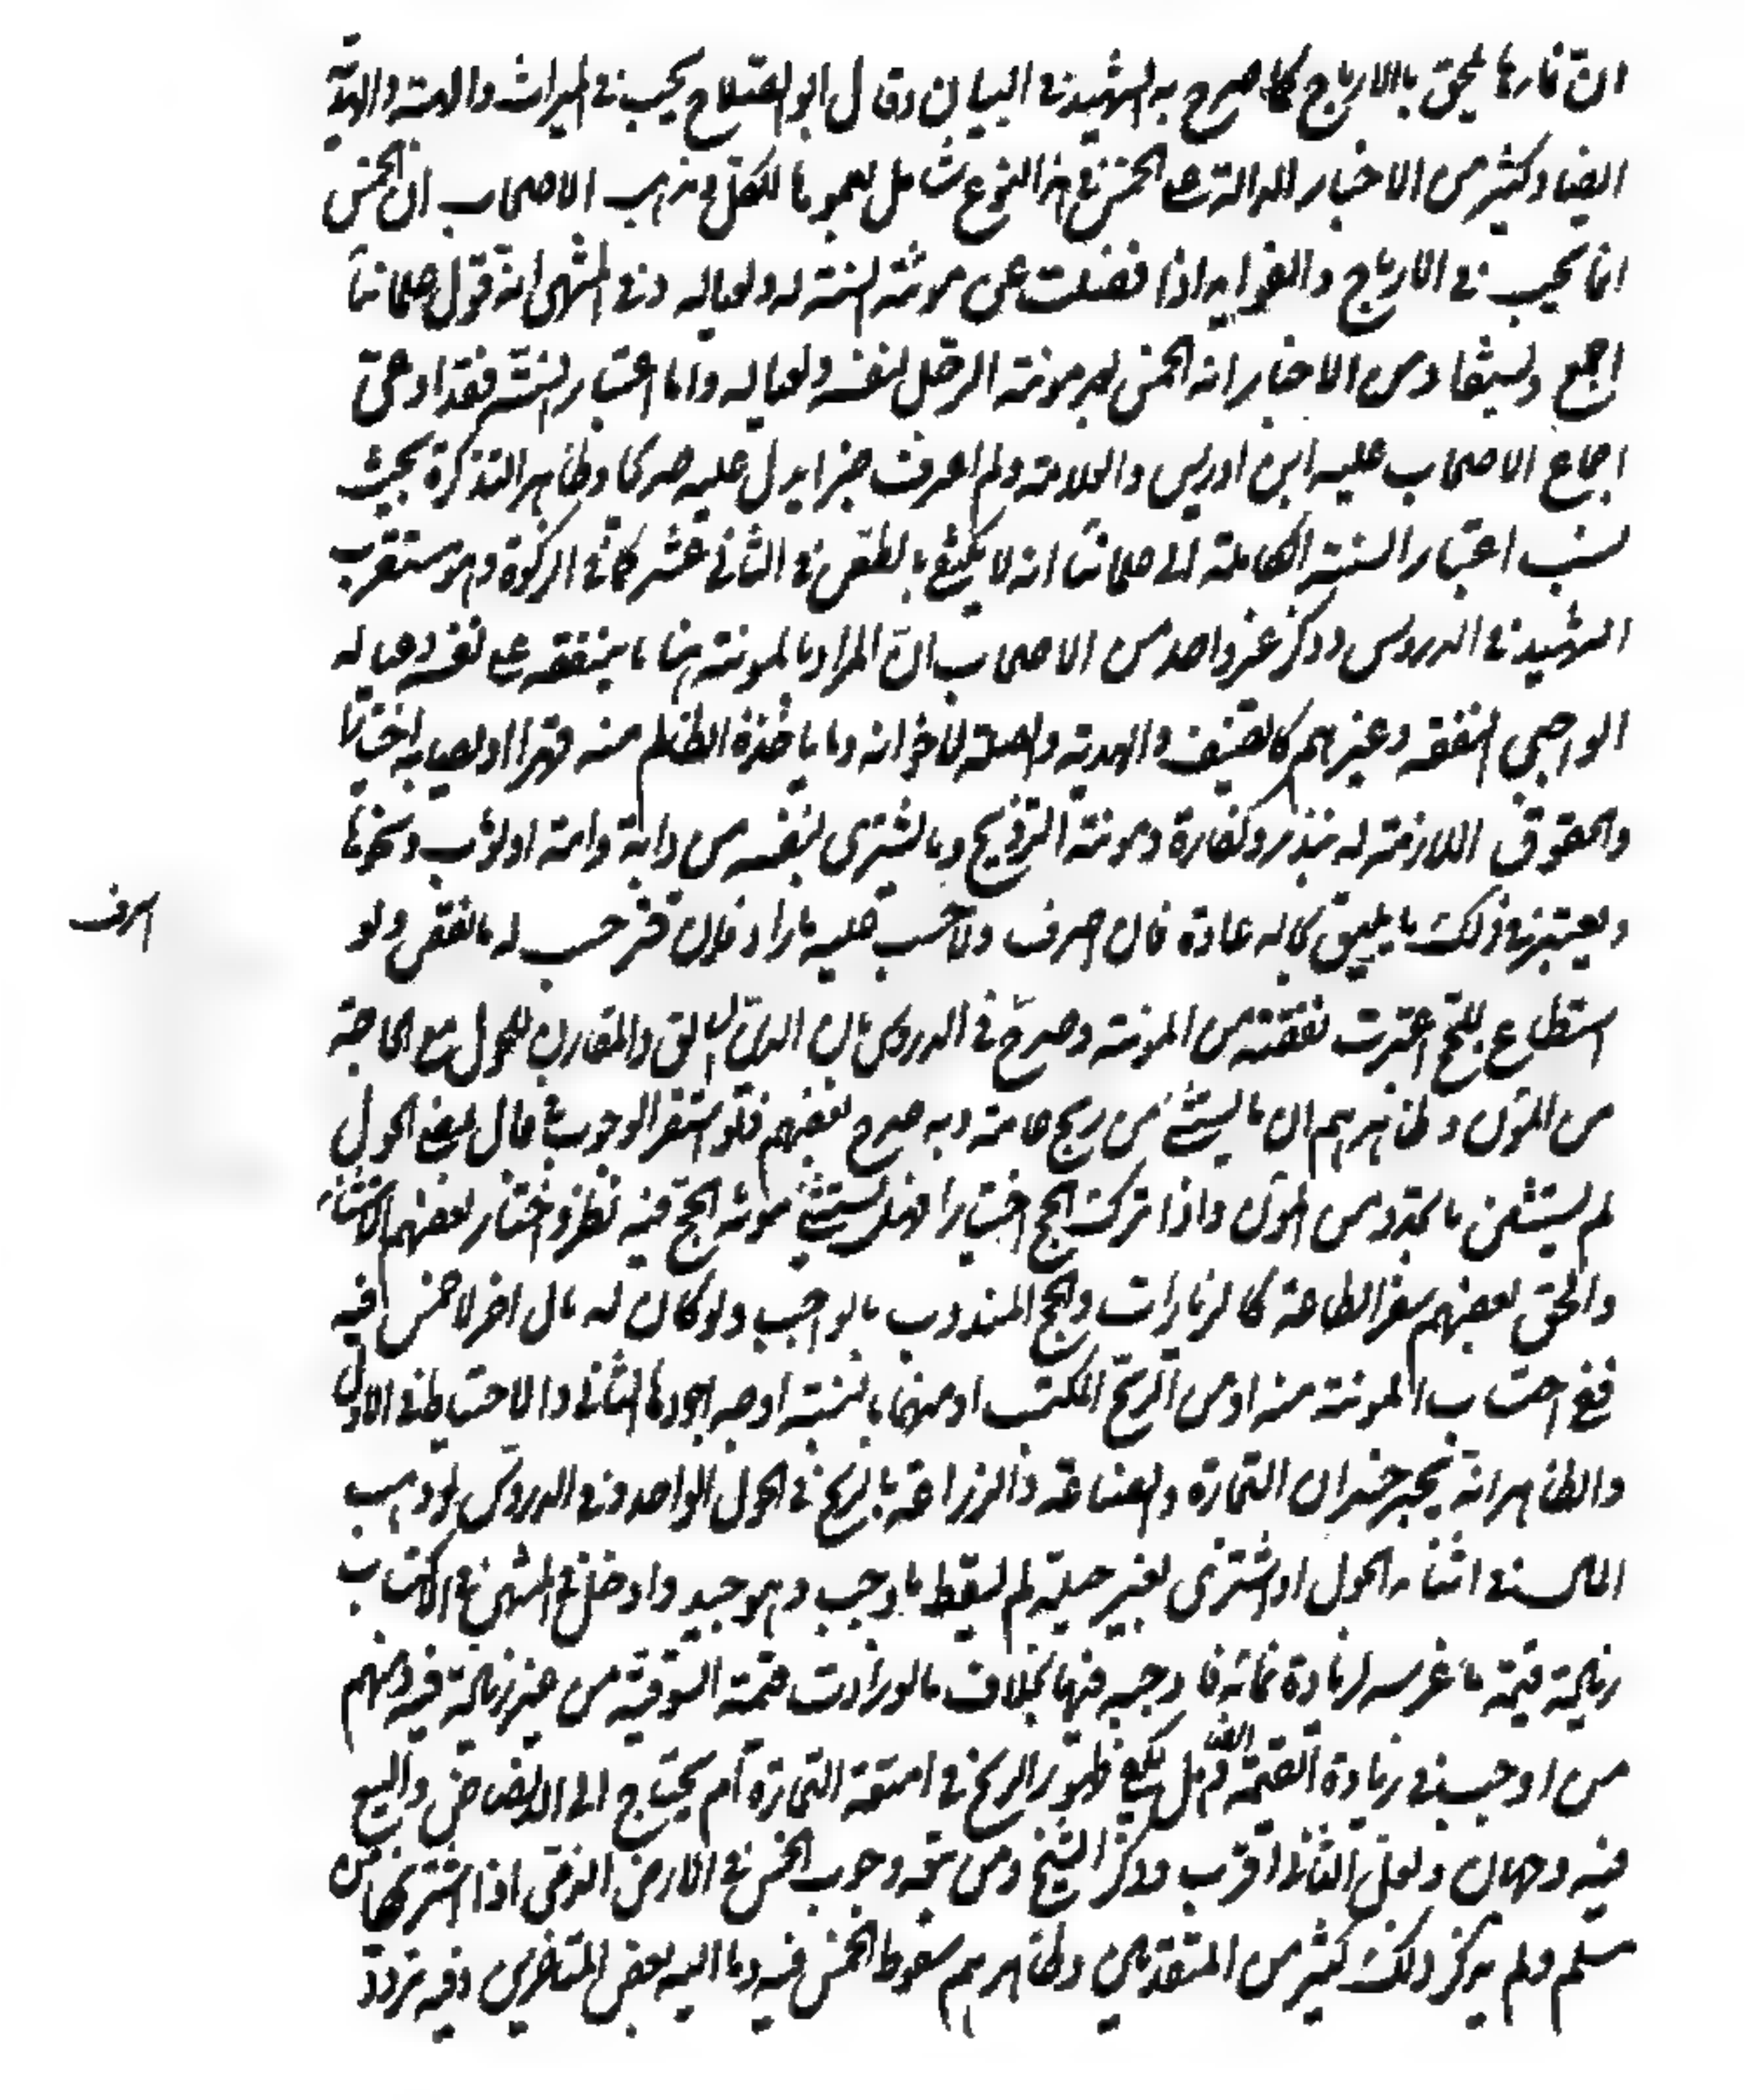 ان نمارها يلحق بالارباح كما صرح به الشهيد في البيان وقال ابو الصلاح يجب في الميراث والهبة والهدية
ايضا وكثير من الاخبار الدالة على الخمس في هذا النوع شامل بعمومها للكل ومذهب الاصحاب ان الخمس
انما يجب في الارباح والفوايد اذا فضلت عن مؤنة السنة له ولعياله وفي المنتهى انه قول علمائنا
اجمع ويستفاد من الاخبار ان الخمس بعد مؤنة الرجل لنفسه ولعياله واما اعتبار السنة فقد ادعى
اجماع الاصحاب عليه ابن ادريس والعلامة ولم اعرف خبرا يدل عليه صريحا وظاهر التذكرة بحيث
نسب اعتبار السنة الكاملة الى علمائنا انه لا يكتفى بالطعن في الثاني عشر كما في الزكوة وهو مستقرب
الشهيد في الدروس وذكر غير واحد من الاصحاب ان المراد بالمؤنة هنا ما ينفقه على نفسه وعياله
الواجبي النفقة وغيرهم كالضيف والهدية والصلة لاخوانه وما ياخذه الظالم منه قهرا او يصانعه اختيارا
والحقوق اللازمة له بنذر وكفارة ومؤنة التزويج وما يشتري لنفسه من دابة وامة او ثوب ونحوها
ويعتبر في ذلك ما يليق بحاله عادة فان اسرف حسب عليه ما زاد وان قتر حسب له ما نقص ولو
اسرف
استطاع للحج اعتبرت نفقته من المؤنة وصرح في الدروس بان الدين السابق والمقارن للحول مع الحاجة
من المؤن وظاهرهم ان ما يستثنى من ربح عامه وبه صرح بعضهم فلو استقر الوجوب في مال بمضي الحول
لم يستثن ما تجدد من المؤن واذا ترك الحج اختيارا فهل يستثنى مؤنة الحج فيه نظر واختار بعضهم الاستثناء
والحق بعضهم سفر الطاعة كالزيارات والحج المندوب بالواجب ولو كان له مال اخر لا خمس فيه
ففي احتساب المؤنة منه او من الربح المكتسب او منهما بالنسبة اوجه اجودها الثاني والاحتياط في الاول
والظاهر انه يجبر خسران التجارة والصناعة والزراعة بالربح في الحول الواحد وفي الدروس لو وهب
المال في اثناء الحول او اشترى بغير حيلة لم يسقط ما وجب وهو جيد وادخل في المنتهى في الاكتساب
زيادة قيمة ما غرسه لزيادة نمائه فاوجبه فيها بخلاف ما لو زادت قيمته السوقية من غير زيادة فيه ومنهم
من اوجب في زيادة القيمة ايضا ثم هل يكفي ظهور الربح في امتعة التجارة ام يحتاج الى الانضاض والبيع
فيه وجهان ولعل الثاني اقرب وذكر الشيخ ومن تبعه وجوب الخمس في الارض الذمي اذا اشتراها من
مسلم ولم يذكر ذلك كثير من المتقدمين وظاهرهم سقوط الخمس فيه ومال اليه بعض المتاخرين وفيه تردد